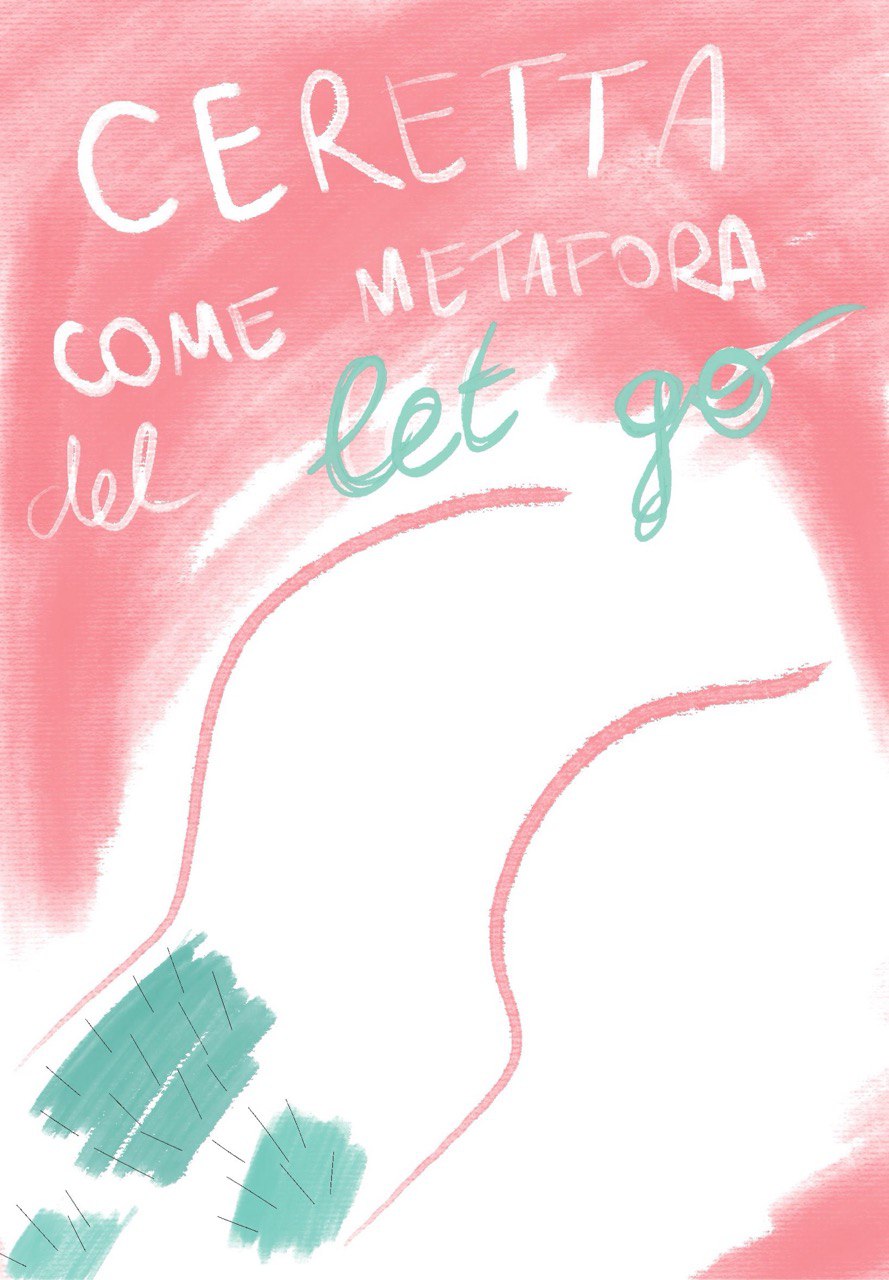 CERETTA
COME METAFORA
del let go